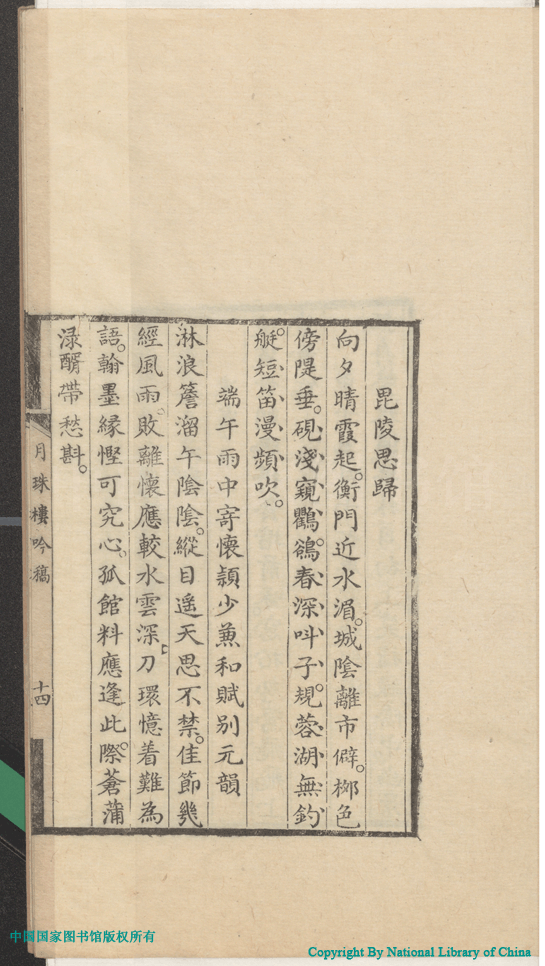 毘陵思歸
向夕晴霞起。衡門近水湄。城陰離市僻。柳色
傍隄垂。硯淺窺鸜鵒。春深呌子規。蓉湖無釣
艇。短笛漫頻吹。
端午雨中寄懷頴少兼和賦別元韻
淋浪簷溜午陰陰。縱目遥天思不禁。佳節幾
經風雨敗。離懷應較水雲深。刀環憶着難為
語。翰墨縁慳可究心。孤館料應逢此際。蒼蒲
渌醑帶愁斟。
月珠樓吟稿
十四
中国国家图书馆版权所有
Copyright By National Library of China